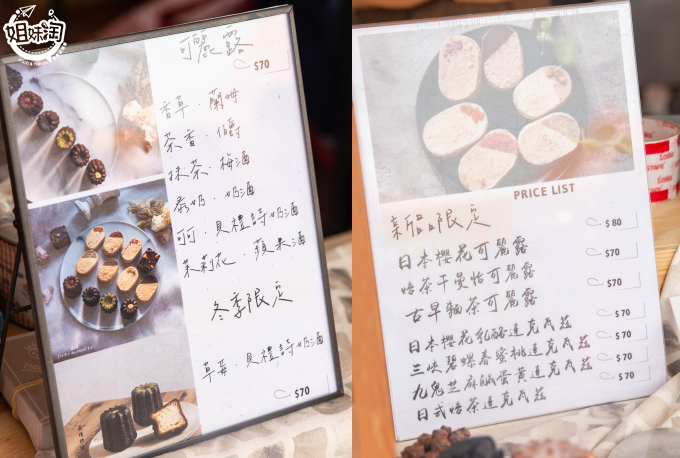 姐妹淘
可麗露
$70
香草·蘭姆
茶香·伯爵
抹茶·梅酒
泰奶·奶酒
可可·貝禮詩奶酒
茉莉花·蘋果酒
冬季限定
草莓·貝禮詩奶酒
$70
PRICE LIST
新品限定
日本櫻花可麗露 $80
焙茶千曼怡可麗露 $70
古早麵茶可麗露 $70
日本櫻花乳酪達克瓦茲 $70
三峽碧螺春蜜桃達克瓦茲 $70
九鬼芝麻鹹蛋黃達克瓦茲 $70
日式焙茶達克瓦茲 $70